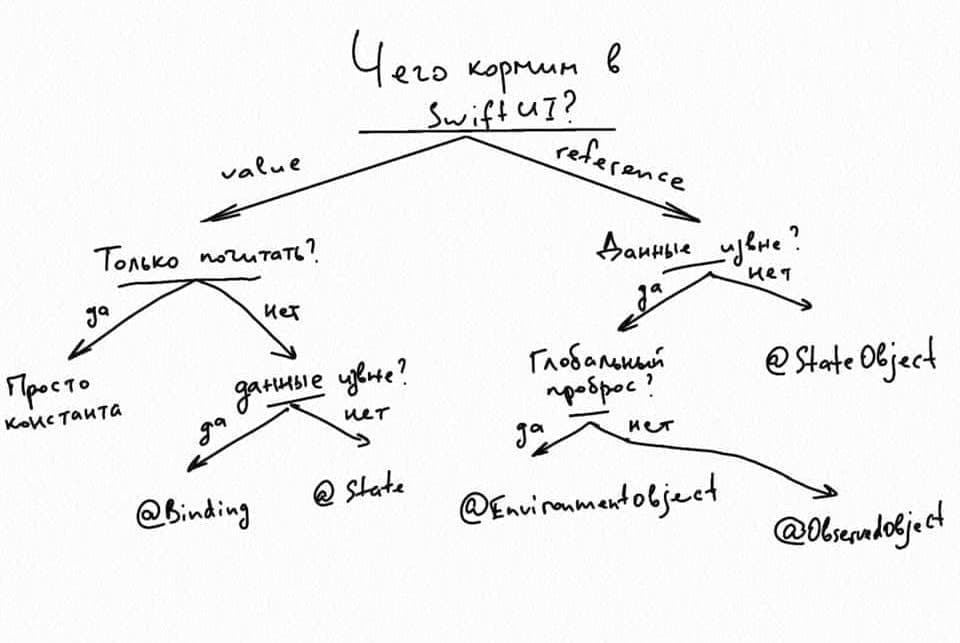 Чего кормим в
SwiftUI?
value
reference
Только почитать?
Данные извне?
да
нет
да
нет
Просто
константа
данные извне?
Глобальный
проброс?
@StateObject
да
нет
да
нет
@Binding
@State
@EnvironmentObject
@ObservedObject